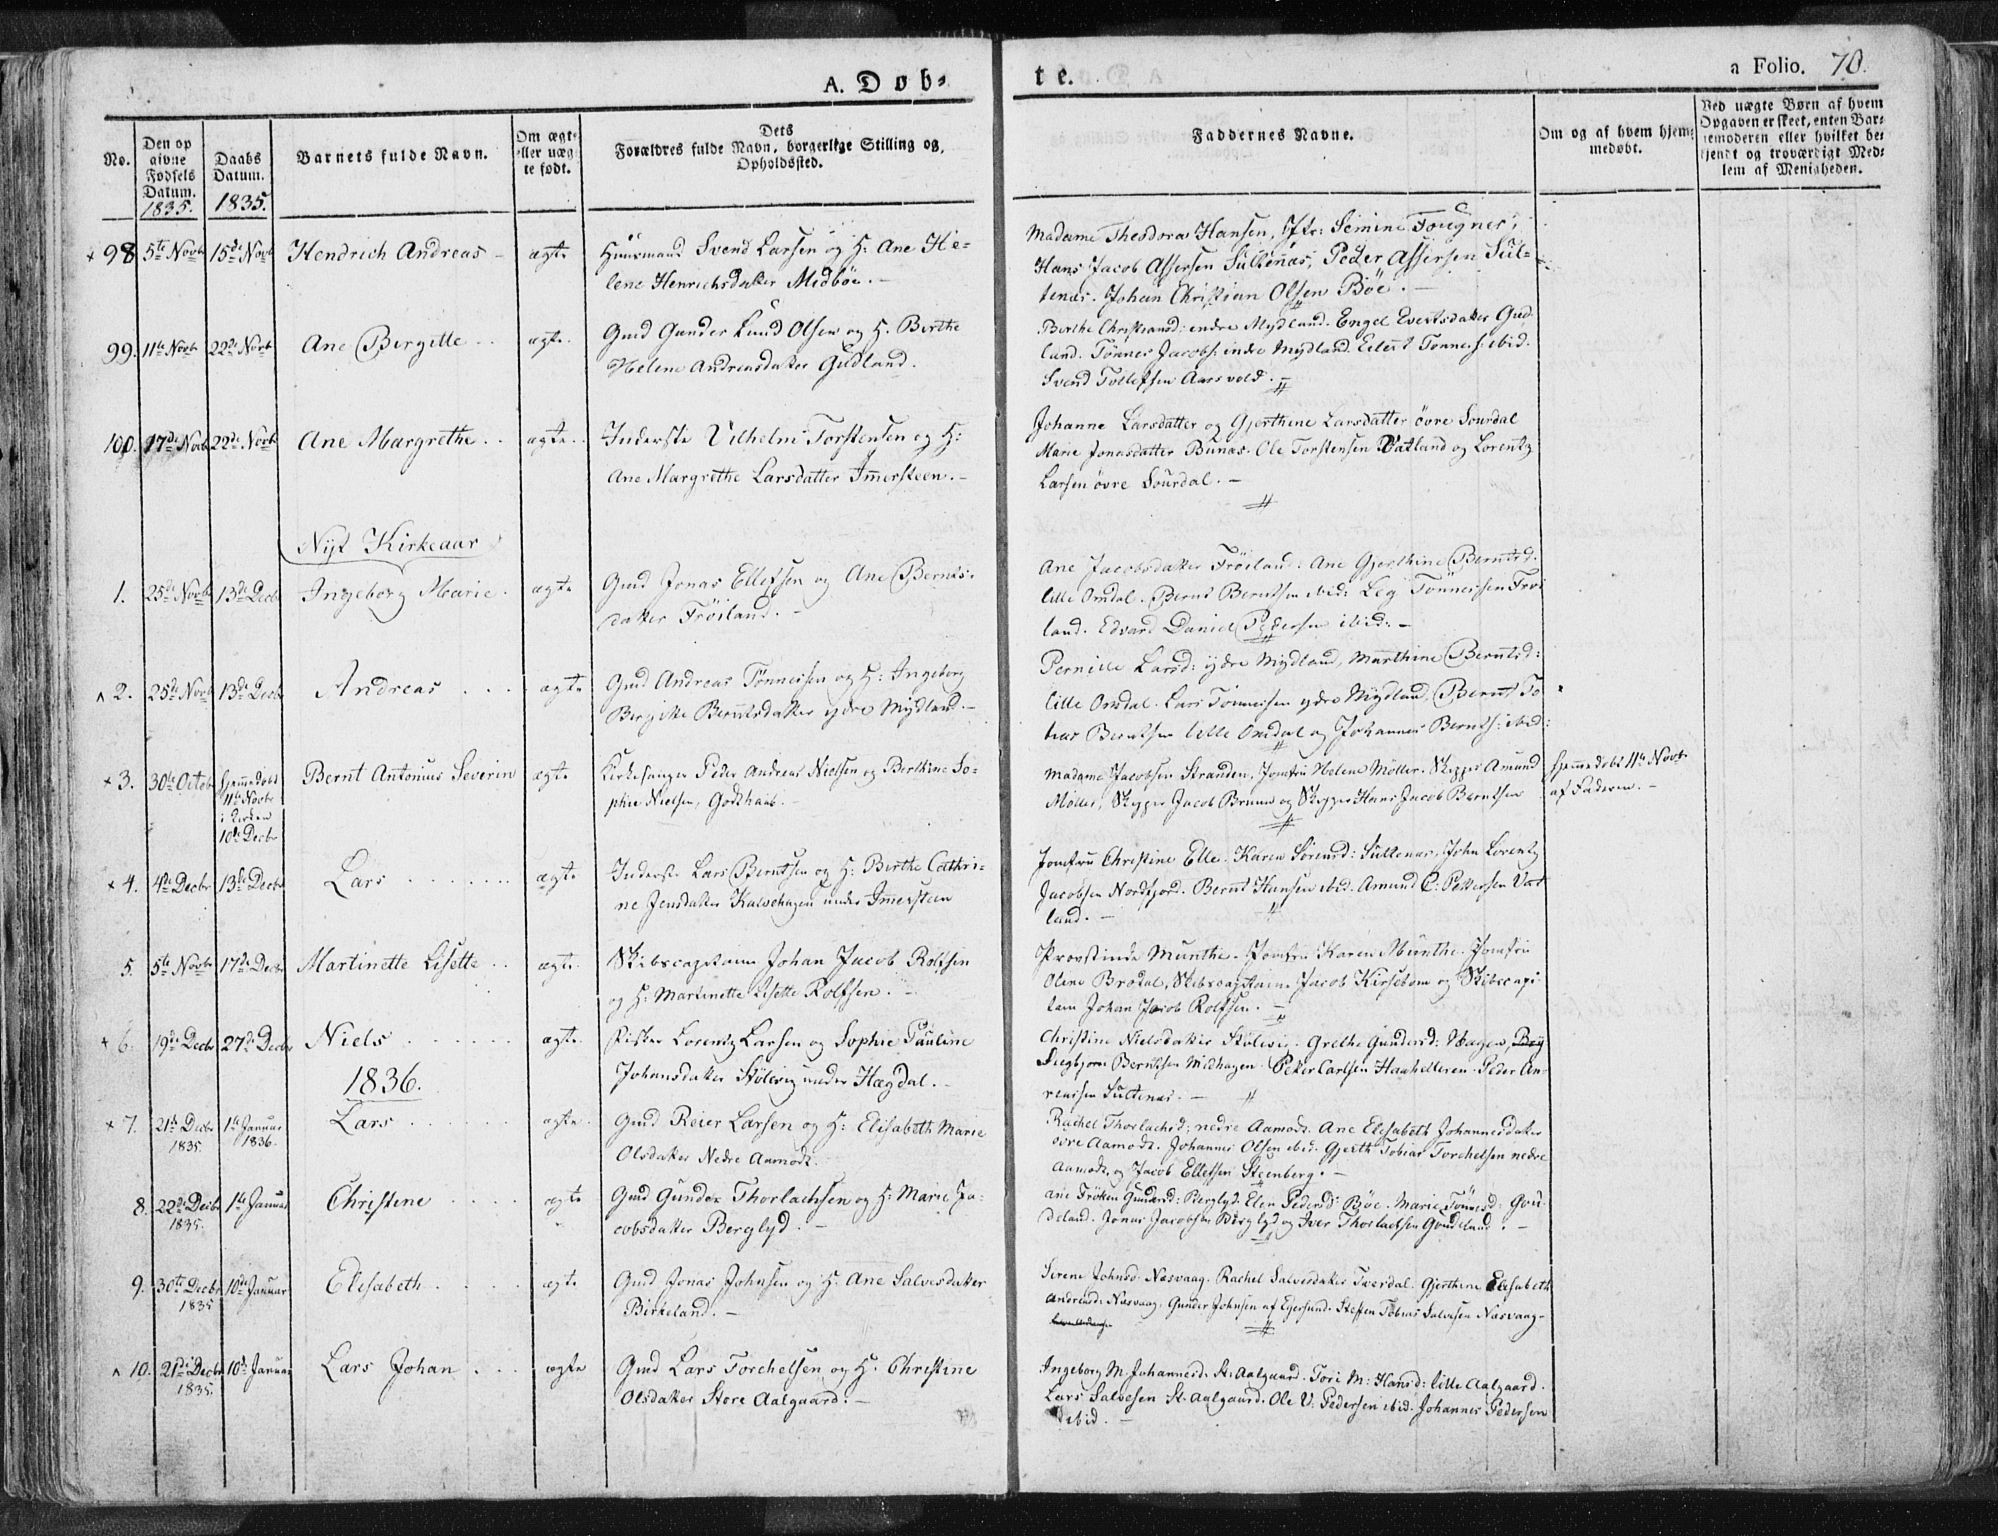 A. Døb-
te.
a Folio. 70.
No.
Den op
givne
Fødsels
Datum.
1835.
Daabs
Datum.
1835.
Barnets fulde Navn.
Om ægt-
eller uæg-
te født.
Dets
Forældres fulde Navn, borgerlige Stilling og,
Opholdssted.
Faddernes Navne.
Om og af hvem hjem-
medøbt.
Ved uægte Børn af hvem
Opgaven er skeet, enten Bar-
nemoderen eller hvilket be-
kjendt og troværdigt Med-
lem af Menigheden.
98 5te Novbr 15de Novbr Hendrich Andreas - ægte
Huusmand Svend Larsen og H: Ane He-
lene Henrichsdatter Midbøe. -
Madame Theodora Hansen, Jfr: Semine
Hans Jacob Assersen Sultenæs, Peder Assersen Sul-
tenæs. Johan Christian Olsen Bøe. -
99. 11te Novbr 22de Novbr Ane Birgitte ægte.
Gmd Gunder Lund Olsen og H. Birthe
Helene Andreasdatter Gudland.
Berthe Christiansd: indre Mydland. Engel Evertsdatter Gud-
land. Tønnes Jacobs: indre Mydland. Eilert Tønness: ibid.
Svend Tollefsen Aarsvold. -
100. 17de Novbr 22de Novbr Ane Margrethe ægte.
Inderste Vilhelm Torstensen og H:
Ane Margrethe Larsdatter Immersteen. -
Johanne Larsdatter og Gjerthine Larsdatter øvre Sourdal
Marie Jonasdatter Bunæs. Ole Torstensen Vatland og Lorentz
Larsen øvre Sourdal. -
Nyt Kirkeaar
1. 25de Novbr 13de Decbr Ingeborg Marie. ægte
Gmd Jonas Ellefsen og Ane Bernts-
datter Frøiland. -
Ane Jacobsdatter Frøiland. Ane Gjerthine Berntsd:
lille Omdal. Bernt Berntsen ibid: Tønnessen Frøi
land. Edvard Daniel Pedersen ibid: -
2. 25de Novbr 13de Decbr Andreas ægte
Gmd Andreas Tønnessen og H: Ingeborg
Birgitte Berntsdatter ydre Mydland. -
Pernille Larsd: ydre Mydland, Marthine Berntsd:
lille Omdal. Lars Tønnessen ydre Mydland, Bernt To
bias Berntsen lille Omdal og Johannes Bernts: ibid:
3. 30te Octobr Hjemmedøbt
11te Novbr
i Kirken
10de Decbr
Bernt Antonius Severin ægte
Kirkesanger Peder Andreas Nielsen og Berthine So-
phie Nielsen, Godthaab. -
Madame Jacobsen Stranden, Jomfru Helene Møller. Skipper Amund
Møller, Skipper Jacob Bruun og Skipper Hans Jacob Berntsen
Hjemmedøbt 11te Novbr
af Faderen. -
4. 4de Decbr 13de Decbr Lars ægte
Inderste Lars Berntsen og H: Birthe Cathri-
ne Jensdatter Kalvehagen under Immersteen
Jomfru Christine Elle. Karen Sørensd: Sultenæs, John Lorentz
Jacobsen Nordfjord. Bernt Hansen ibid. Amund C: Pettersen Vat
land. -
5. 5te Novbr 17de Decbr Martinette Lisette ægte.
Skibscapitain Johan Jacob Rolfsen
og H: Martinette Lisette Rolfsen. -
Provstinde Munthe. Jomfru Karen Munthe. Jomfru
Oline Brodal, Skibscapitain Jacob Kirsebom og Skibscapi
tain Johan Jacob Rolfsen. -
6. 19de Decbr 27de Decbr Niels ægte.
Fisker Lorentz Larsen og Sophie Pauline
Johansdatter Stølevig under Hægdal. -
Christine Nielsdatter Stølevig. Grethe Gundersd: Vaagen,
Siegbjørn Berntsen Midhagen. Peter Carlsen Haahelleren. Peder An-
reassen Sultenæs. -
1836.
7. 21de Decbr
1835.
1te Januar
1836.
Lars ægte.
Gmd Reier Larsen og H: Elisabeth Marie
Olsdatter Nedre Aamodt.
Rachel Thorlachsd: nedre Aamodt. Ane Elisabeth Johannesdatter
øvre Aamodt. Johannes Olsen ibid. Gjerth Tobias Torchelsen nedre
Aamodt, og Jacob Ellefsen Steenberg. -
8. 22de Decbr
1835.
1te Januar Christine ægte
Gmd Gunder Thorlachsen og H: Marie Ja-
cobsdatter Berglyd. -
Ane Frøken Gundersd: Berglyd. Elen Pedersd: Bøe. Marie Tønnesd: Gou-
deland. Jonas Jacobsen Berglyd og Iver Thorlachsen Goudeland. -
9. 30te Decbr
1835
10de Januar Elisabeth. ægte
Gmd Jonas Johnsen og H. Ane Salvesdatter
Birkeland. -
Serene Johnsd: Næsvaag. Rachel Salvesdatter Tverdal. Gjerthine Elisabeth
Andreasd: Næsvaag. Gunder Johnsen af Egersund. Steffen Tobias Salvesen Næsvaag-
10. 21de Decbr
1835.
10de Januar Lars Johan ægte
Gmd Lars Torchelsen og H. Christine
Olsdatter Store Aalgaard. -
Ingeborg M. Johannesd. St: Aalgaard. Tori M: Hansd: lille Aalgaard.
Lars Salvesen St. Aalgaard. Ole V. Pedersen ibid. Johannes Pedersen
ibid. -